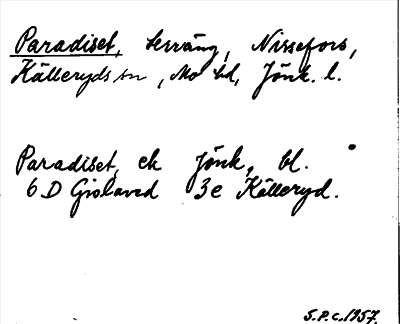 Paradiset, terräng, Nissefors,
Källeryds sn, Mo hd, Jönk. l.
Paradiset, ek Jönk, bl.
6 D Gislaved 3e Källeryd.
S.P.C. 1957.